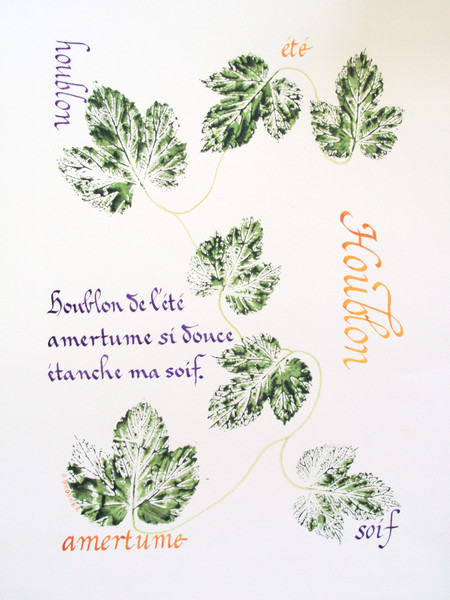 houblon
été
Houblon
Houblon de l'été
amertume si douce
étanche ma soif.
amertume
soif